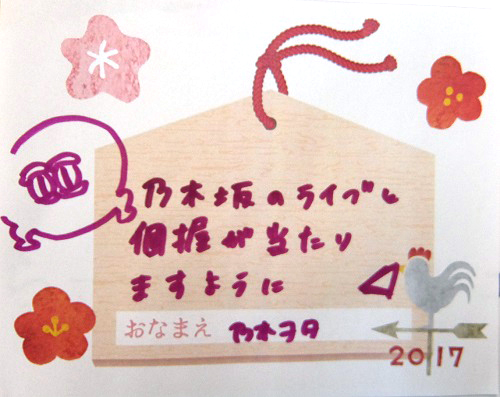 乃木坂のライブし
個握が当たり
ますように
おなまえ 乃木ヲタ
2017